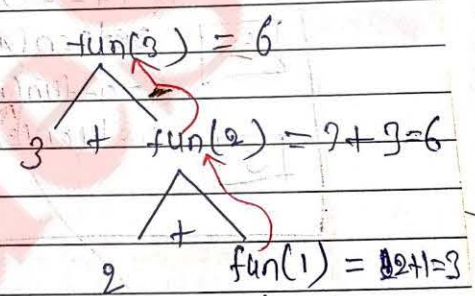 fun(3) = 6
3 + fun(2) = 3+3=6
2 + fun(1) = 2+1=3